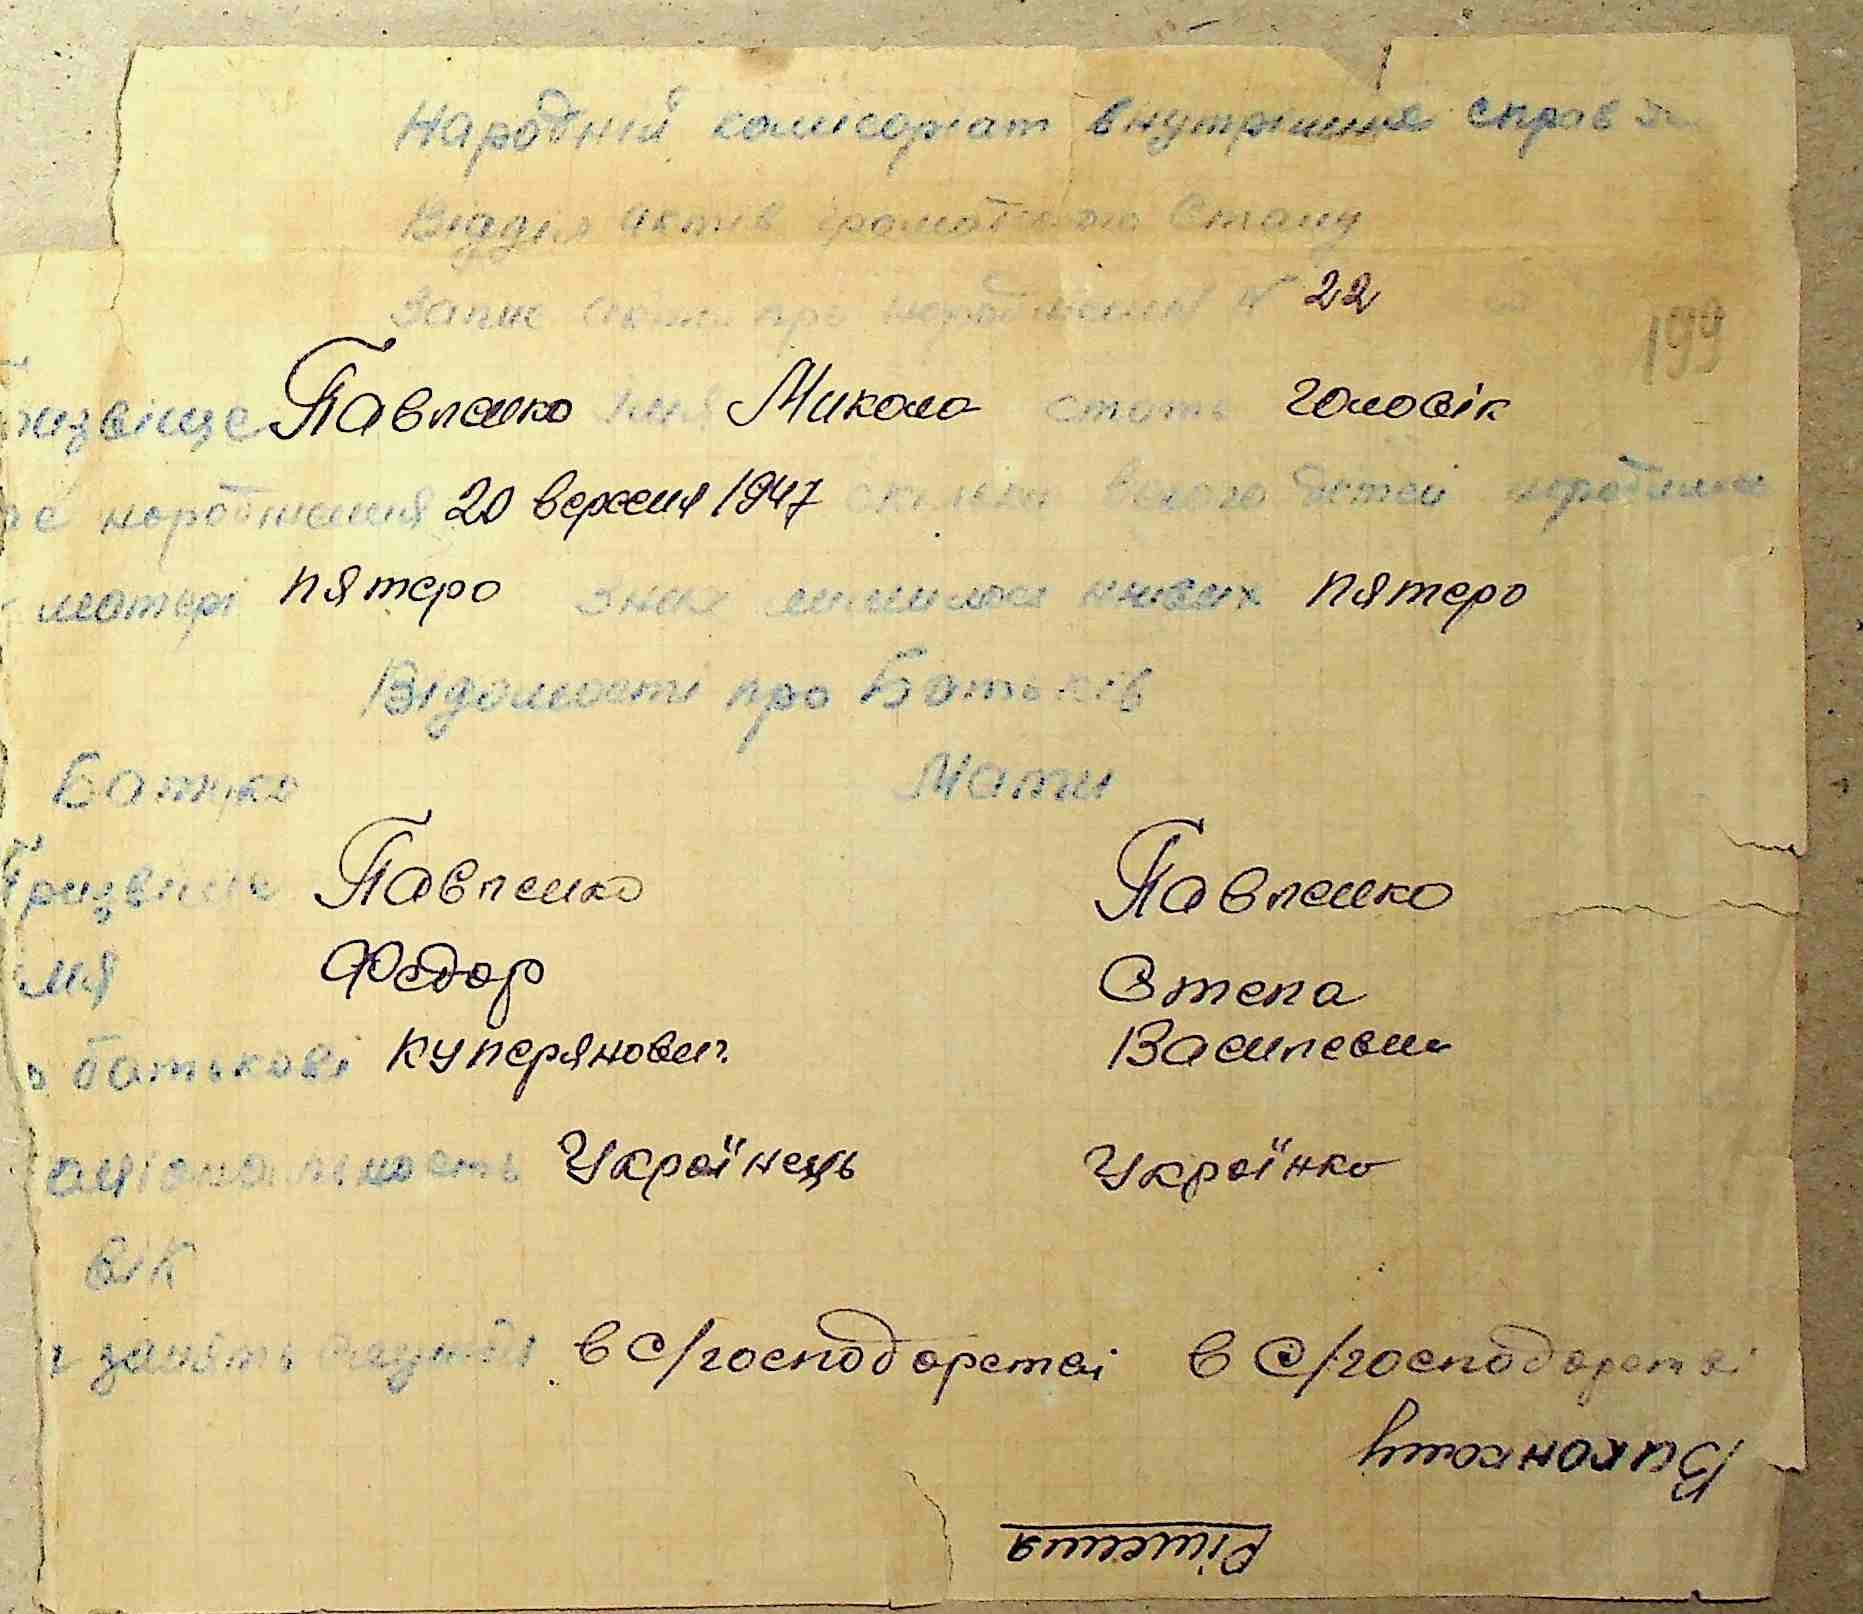 Народній комісаріат внутрішніх справ
Відділ актів громадського Стану
Запис акта про народження № 22
199
різвіще Павленко Імя Микола стать чоловік
народження 20 вересня 1947 скільки всього дітей народила
матері пятеро з них лишилось живих пятеро
Відомості про Батьків
Батько Мати
Прізвіще Павленко Павленко
мя Федор Степа
о батькові куперянович Василевна
аціональность Українець Українка
вік
занять в с/господарстві в с/господарстві
Виконкому
Рішення